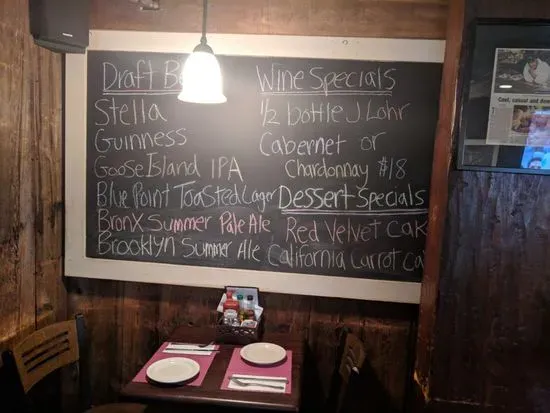 Draft Be
Stella
Guinness
Goose Island IPA
Blue Point Toasted Lager
Bronx Summer Pale Ale
Brooklyn Summer Ale
Wine Specials
1/2 bottle J. Lohr
Cabernet or
Chardonnay #18
Dessert Specials
Red Velvet Cak
California Carrot Ca